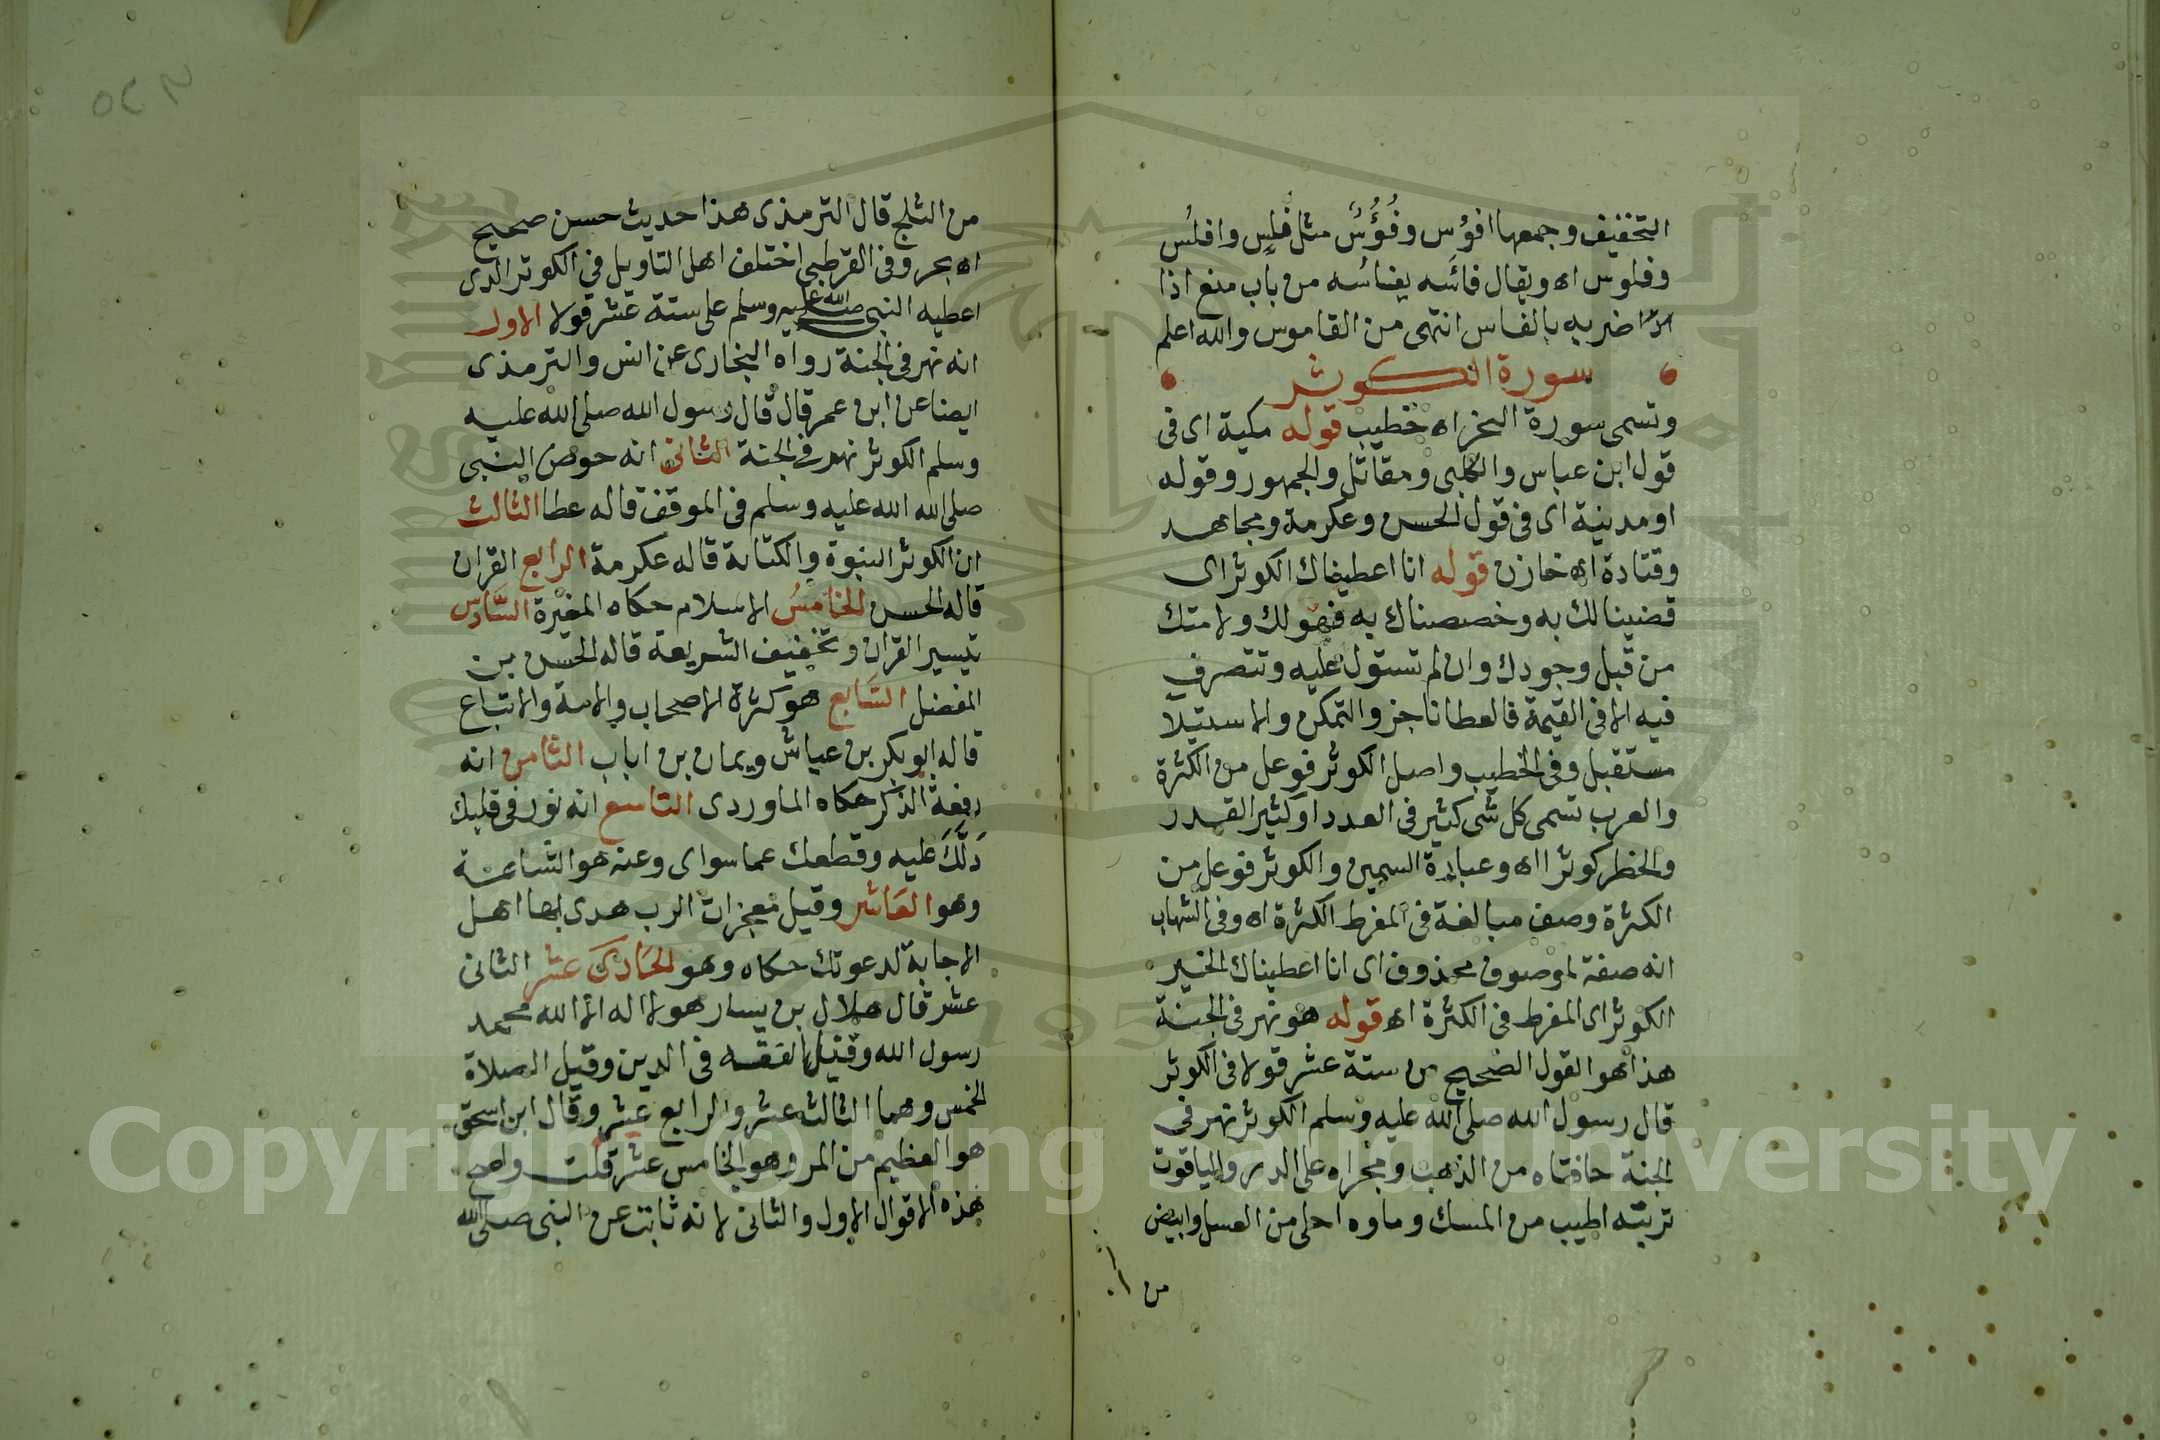 التخفيف وجمعها افؤس وفُؤُسٌ مثل فلس وافلُس
وفلوس اه ويقال فائسه يفئاسه من باب منع اذا
ضربه بالفاس انتهى من القاموس والله اعلم
سورة الكوثر
وتسمى سورة النحر اه خطيب قوله مكية اى فى
قول ابن عباس والكلبى ومقاتل والجمهور وقوله
او مدنية اى فى قول الحسن وعكرمة ومجاهد
وقتادة اه خازن قوله انا اعطيناك الكوثر اى
قضينا لك به وخصصناك به فهو لك ولامتك
من قبل وجودك وان لم تستول عليه وتتصرف
فيه الا فى القيمة فالعطا ناجز والتمكن والاستيلا
مستقبل وفى الخطيب واصل الكوثر فوعل من الكثرة
والعرب تسمى كل شى كثير فى العدد او كثير القدر
والخطر كوثرا اه وعبارة السمين والكوثر فوعل من
الكثرة وصف مبالغة فى المفرط الكثرة اه وفى الشهاب
انه صفة لموصوف محذوف اى انا اعطيناك الخير
الكوثر اى المفرط فى الكثرة اه قوله هو نهر فى الجنة
هذا هو القول الصحيح من ستة عشر قولا فى الكوثر
قال رسول الله صلى الله عليه وسلم الكوثر نهر فى
الجنة حافتاه من الذهب ومجراه على الدر والياقوت
تربته اطيب من المسك وماوه احلى من العسل وابيض
من
من الثلج قال الترمذى هذا حديث حسن صحيح
اه بحر وفى القرطبى اختلف اهل التاويل فى الكوثر الذى
اعطيه النبى صلى الله عليه وسلم على ستة عشر قولا الاول
انه نهر فى الجنة رواه البخارى عن انس والترمذى
ايضا عن ابن عمر قال قال رسول الله صلى الله عليه
وسلم الكوثر نهر فى الجنة الثانى انه حوض النبى
صلى الله الله عليه وسلم فى الموقف قاله عطا الثالث
ان الكوثر النبوة والكتابة قاله عكرمة الرابع القران
قاله الحسن الخامسُ الاسلام حكاه المغيرة السَّادس
تيسير القران وتخفيف الشريعة قاله الحسن بن
المفضل السَّابع هو كثرة الاصحاب والامة والاتباع
قاله ابو بكر بن عياش ويمان بن اباب الثامن انه
رفعة الذكر حكاه الماوردى التاسع انه نور فى قلبك
دَلَّكَ عليه وقطعك عما سواى وعنه هو الشاعة
وهو العَاشر وقيل معجزات الرب هدى بها اهل
الاجابة لدعوتك حكاه وهو الحَادىَ عشر الثانى
عشر قال هلال بن يسار هو لا اله الا الله محمد
رسول الله وقيل الفقه فى الدين وقيل الصلاة
الخمس وهما الثالث عشر والرابع عشر وقال ابن اسحق
هو العظيم من المر وهو الخامس عشر قلت واصح
هذه الاقوال الاول والثانى لانه ثابت عن النبى صلى الله
Copyright © King Saud University
1957